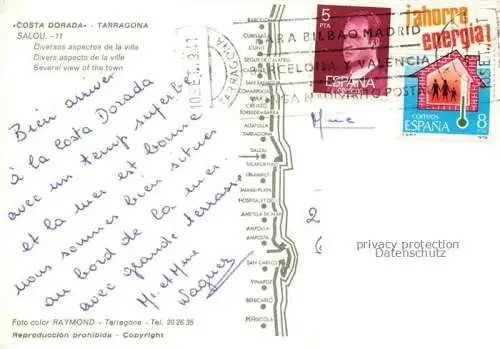 «COSTA DORADA» - TARRAGONA
SALOU. - 11
Diversos aspectos de la villa
Divers aspects de la ville
Several view of the town
Bien arrivés
à la Costa Dorada
avec un temps superbe
et la mer est bonne
nous sommes bien situés
au bord de la mer.
avec grande terrasse
Mr. et Mme
Wagner
Foto color RAYMOND - Tarragona - Tel. 20 26 35
Reproducción prohibida - Copyright
BARCELONA
TARRAGONA
SALOU
CAMBRILS
HOSPITALET DEL
AMETLLA DE MAR
AMPOLLA
AMPOSTA
SAN CARLOS
VINAROZ
BENICARLO
PEÑISCOLA
TARRAGONA
PARA BILBAO, MADRID
BARCELONA Y VALENCIA
USA
POSTAL
5
PTA
ESPAÑA
¡ahorra
energia!
CORREOS
ESPAÑA
8
Mme
privacy protection
Datenschutz